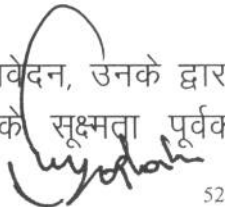 वेदन, उनके द्वार
के सूक्ष्मता पूर्वक
52